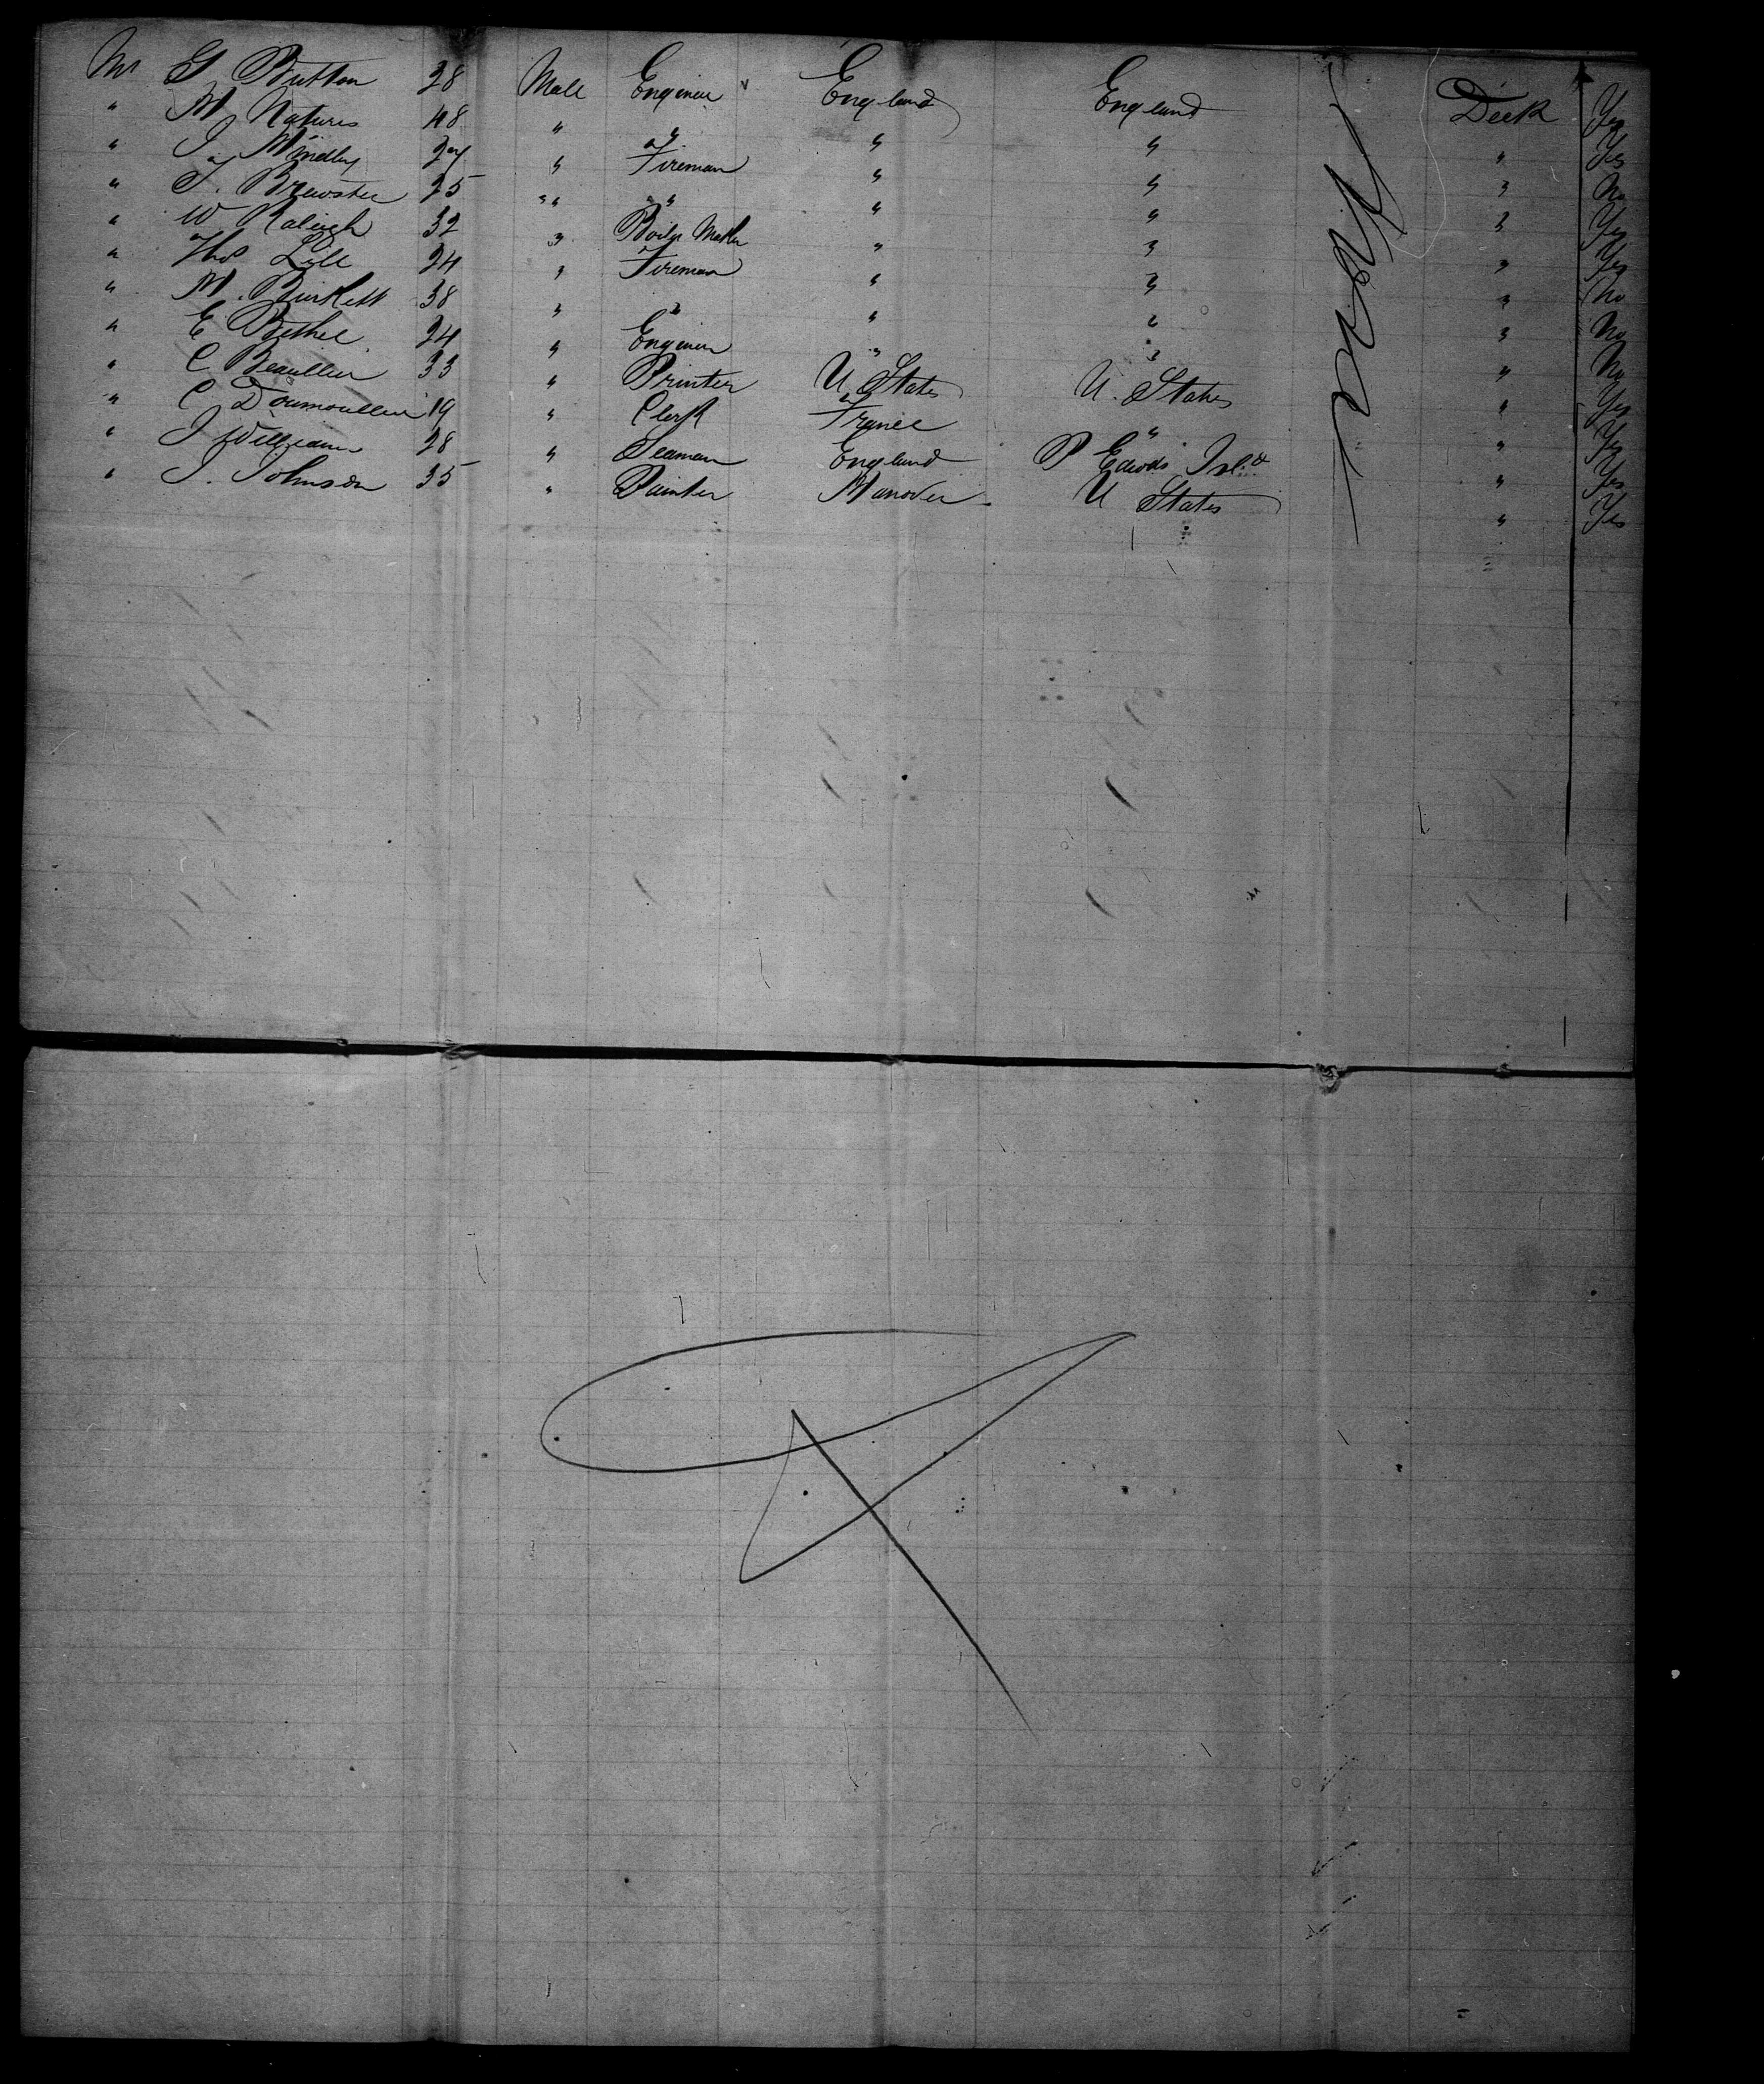 Mr G Button 28 Male Engineer England England Deck Yes
" M Natures 48 " " " " " Yes
" J Mindley 27 " Fireman " " " No
" T. Brewster 25 " " " " " Yes
" W Raleigh 32 " Boiler Maker " " " Yes
" Thos Lill 24 " Fireman " " " No
" M. Burkett 38 " " " " " No
" E Bethel 24 " Engineer " " " No
" C Beaullieu 33 " Printer U. States U. States " Yes
" C Doumoullin 19 " Clerk France " " Yes
" J Williams 28 " Seaman England P Edwds Isld " Yes
" J. Johnson 35 " Painter Hanover U States " Yes
None